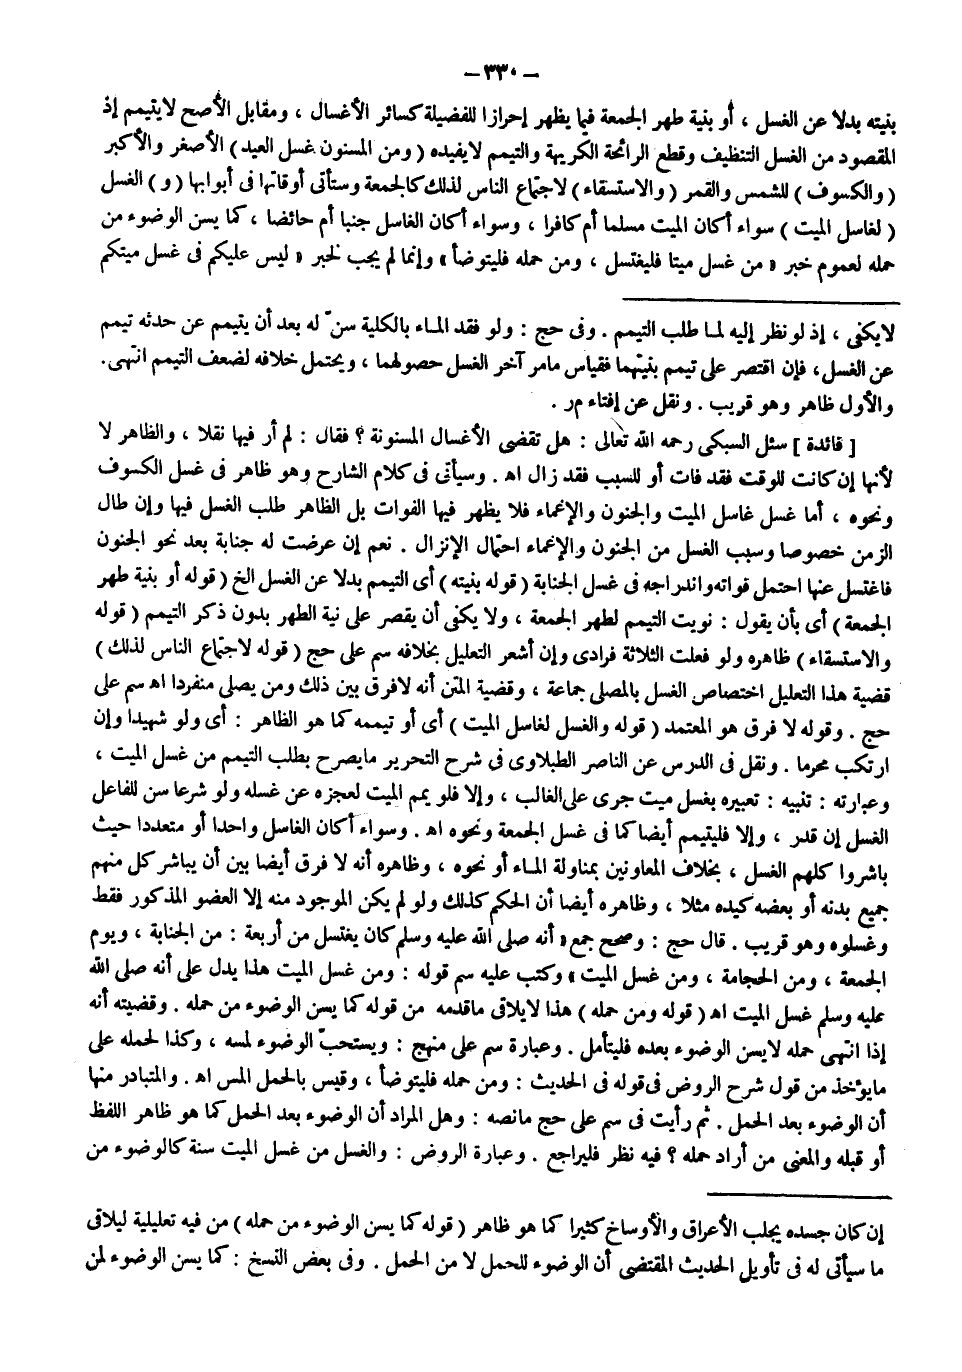 – ٣٣٠ –
بنيته بدلا عن الغسل ، أو بنية طهر الجمعة فيما يظهر إحرازا للفضيلة كسائر الأغسال ، ومقابل الأصح لا يتيمم إذ
المقصود من الغسل التنظيف وقطع الرائحة الكريهة والتيمم لا يفيده ( ومن المسنون غسل العيد ) الأصغر والأكبر
( والكسوف ) للشمس والقمر ( والاستسقاء ) لاجتماع الناس لذلك كالجمعة وستأتى أوقاتها فى أبوابها ( و ) الغسل
( لغاسل الميت ) سواء أكان الميت مسلما أم كافرا ، وسواء أكان الغاسل جنبا أم حائضا ، كما يسن الوضوء من
حمله لعموم خبر « من غسل ميتا فليغتسل ، ومن حمله فليتوضأ » وإنما لم يجب لخبر « ليس عليكم فى غسل ميتكم
لايكفى ، إذ لو نظر إليه لما طلب التيمم . وفى حج : ولو فقد الماء بالكلية سنّ له بعد أن يتيمم عن حدثه تيمم
عن الغسل، فإن اقتصر على تيمم بنيتهما فقياس مامر آخر الغسل حصولهما ، ويحتمل خلافه لضعف التيمم انتهى.
والأول ظاهر وهو قريب . ونقل عن إفتاء مر .
[ فائدة ] سئل السبكى رحمه الله تعالى : هل تقضى الأغسال المسنونة ؟ فقال : لم أر فيها نقلا ، والظاهر لا
لأنها إن كانت للوقت فقد فات أو للسبب فقد زال اه . وسيأتى فى كلام الشارح وهو ظاهر فى غسل الكسوف
ونحوه ، أما غسل غاسل الميت والجنون والإغماء فلا يظهر فيها الفوات بل الظاهر طلب الغسل فيها وإن طال
الزمن خصوصا وسبب الغسل من الجنون والإغماء احتمال الإنزال . نعم إن عرضت له جنابة بعد نحو الجنون
فاغتسل عنها احتمل فواته واندراجه فى غسل الجنابة ( قوله بنيته ) أى التيمم بدلا عن الغسل الخ ( قوله أو بنية طهر
الجمعة ) أى بأن يقول : نويت التيمم لطهر الجمعة ، ولا يكفى أن يقصر على نية الطهر بدون ذكر التيمم ( قوله
والاستسقاء ) ظاهره ولو فعلت الثلاثة فرادى وإن أشعر التعليل بخلافه سم على حج ( قوله لاجتماع الناس لذلك )
قضية هذا التعليل اختصاص الغسل بالمصلى جماعة ، وقضية المتن أنه لا فرق بين ذلك ومن يصلى منفردا اه سم على
حج . وقوله لا فرق هو المعتمد ( قوله والغسل لغاسل الميت ) أى أو تيممه كما هو الظاهر : أى ولو شهيدا وإن
ارتكب محرما . ونقل فى الدرس عن الناصر الطبلاوى فى شرح التحرير مايصرح بطلب التيمم من غسل الميت ،
وعبارته : تنبيه : تعبيره بغسل ميت جرى على الغالب ، وإلا فلو يمم الميت لعجزه عن غسله ولو شرعا سن للفاعل
الغسل إن قدر ، وإلا فليتيمم أيضا كما فى غسل الجمعة ونحوه اه . وسواء أكان الغاسل واحدا أو متعددا حيث
باشروا كلهم الغسل ، بخلاف المعاونين بمناولة الماء أو نحوه ، وظاهره أنه لا فرق أيضا بين أن يباشر كل منهم
جميع بدنه أو بعضه كيده مثلا ، وظاهره أيضا أن الحكم كذلك ولو لم يكن الموجود منه إلا العضو المذكور فقط
وغسلوه وهو قريب . قال حج : وصحح جمع « أنه صلى الله عليه وسلم كان يغتسل من أربعة : من الجنابة ، ويوم
الجمعة ، ومن الحجامة ، ومن غسل الميت » وكتب عليه سم قوله : ومن غسل الميت هذا يدل على أنه صلى الله
عليه وسلم غسل الميت اه ( قوله ومن حمله ) هذا لايلاقى ماقدمه من قوله كما يسن الوضوء من حمله . وقضيته أنه
إذا انتهى حمله لايسن الوضوء بعده فليتأمل . وعبارة سم على منهج : ويستحبّ الوضوء لمسه ، وكذا لحمله على
مايؤخذ من قول شرح الروض فى قوله فى الحديث : ومن حمله فليتوضأ ، وقيس بالحمل المس اه . والمتبادر منها
أن الوضوء بعد الحمل . ثم رأيت فى سم على حج مانصه : وهل المراد أن الوضوء بعد الحمل كما هو ظاهر اللفظ
أو قبله والمعنى من أراد حمله ؟ فيه نظر فليراجع . وعبارة الروض : والغسل من غسل الميت سنة كالوضوء من
إن كان جسده يجلب الأعراق والأوساخ كثيرا كما هو ظاهر ( قوله كما يسن الوضوء من حمله ) من فيه تعليلية ليلاقى
ما سيأتى له فى تأويل الحديث المقتضى أن الوضوء للحمل لا من الحمل . وفى بعض النسخ : كما يسن الوضوء لمن